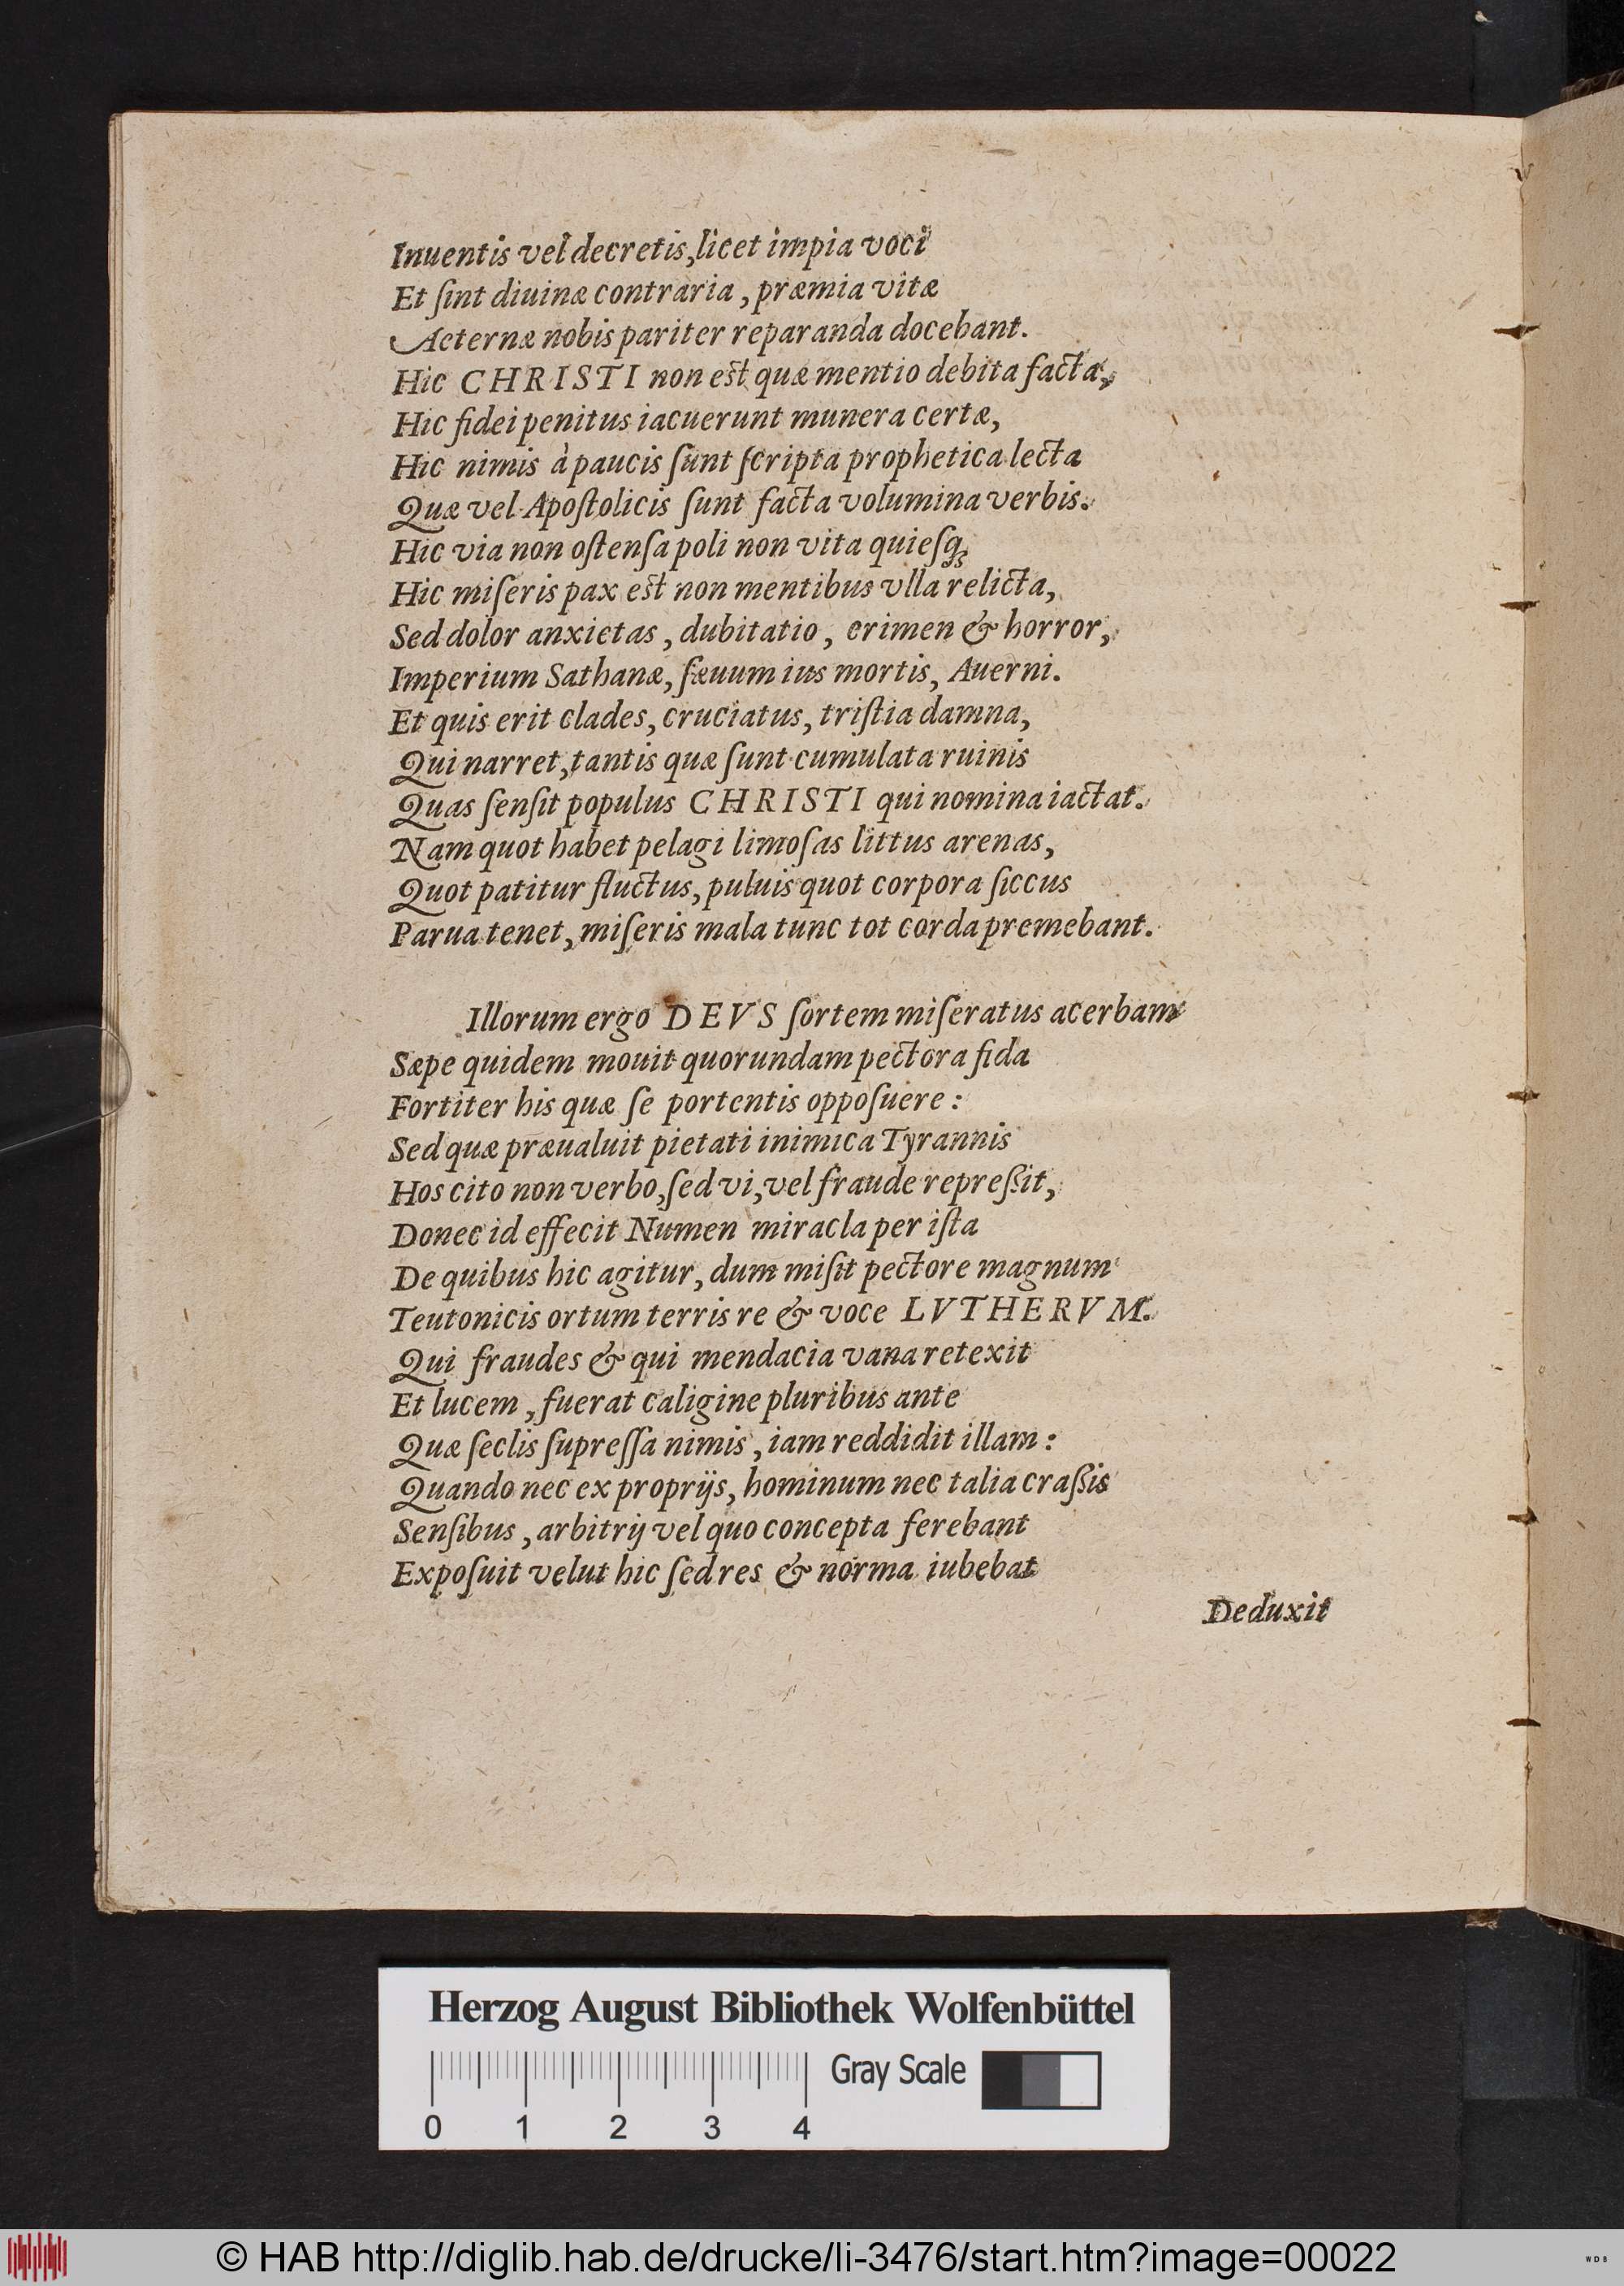 Inuentis vel decretis, licet impia voci
Et ſint diuinæ contraria, præmia vitæ
Aeternæ nobis pariter reparanda docebant.
Hic CHRISTI non est quæ mentio debita facta,
Hic fidei penitus iacuerunt munera certæ,
Hic nimis à paucis ſunt ſcripta prophetica lecta
Quæ vel Apoſtolicis ſunt facta volumina verbis.
Hic via non oſtenſa poli non vita quieſq;
Hic miſeris pax est non mentibus vlla relicta,
Sed dolor anxietas, dubitatio, crimen & horror,
Imperium Sathanæ, ſæuum ius mortis, Auerni.
Et quis erit clades, cruciatus, triſtia damna,
Qui narret, tantis quæ ſunt cumulata ruinis
Quas ſenſit populus CHRISTI qui nomina iactat.
Nam quot habet pelagi limoſas littus arenas,
Quot patitur fluctus, puluis quot corpora ſiccus
Parua tenet, miſeris mala tunc tot corda premebant.
Illorum ergo DEVS ſortem miſeratus acerbam
Sæpe quidem mouit quorundam pectora fida
Fortiter his quæ ſe portentis oppoſuere:
Sed quæ præualuit pietati inimica Tyrannis
Hos cito non verbo, ſed vi, vel fraude repreßit,
Donec id effecit Numen miracla per iſta
De quibus hic agitur, dum miſit pectore magnum
Teutonicis ortum terris re & voce LVTHERVM.
Qui fraudes & qui mendacia vana retexit
Et lucem, fuerat caligine pluribus ante
Quæ ſeclis ſupreſſa nimis, iam reddidit illam:
Quando nec ex proprijs, hominum nec talia craßis
Senſibus, arbitrij vel quo concepta ferebant
Expoſuit velut hic ſed res & norma iubebat
Deduxit
Herzog August Bibliothek Wolfenbüttel
Gray Scale
0 1 2 3 4
© HAB http://diglib.hab.de/drucke/li-3476/start.htm?image=00022
WDB